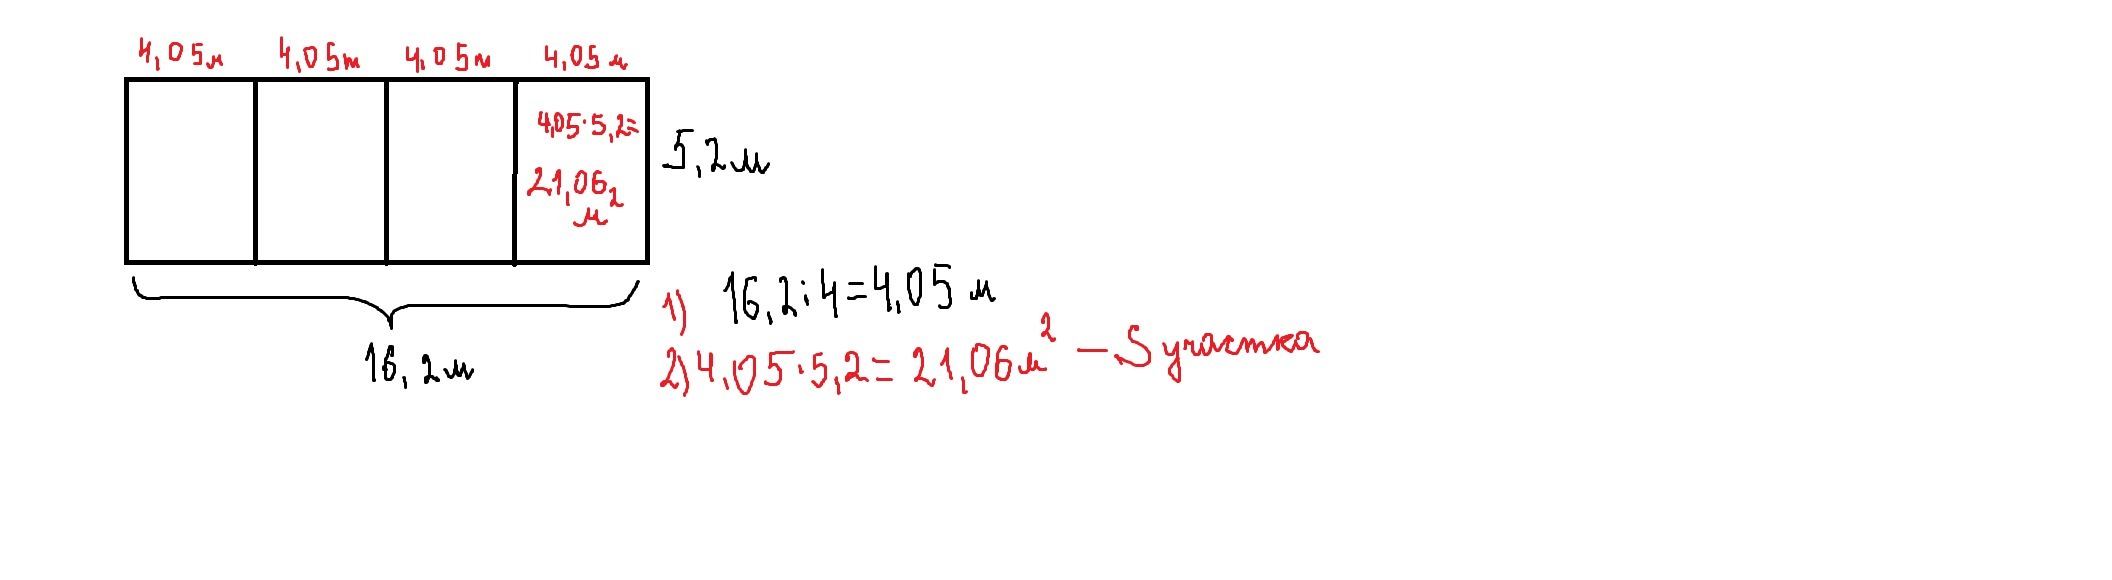 4,05м 4,05m 4,05м 4,05м
4,05·5,2=
21,06
м²
5,2м
16,2м
1) 16,2:4=4,05 м
2) 4,05·5,2= 21,06м² – S участка